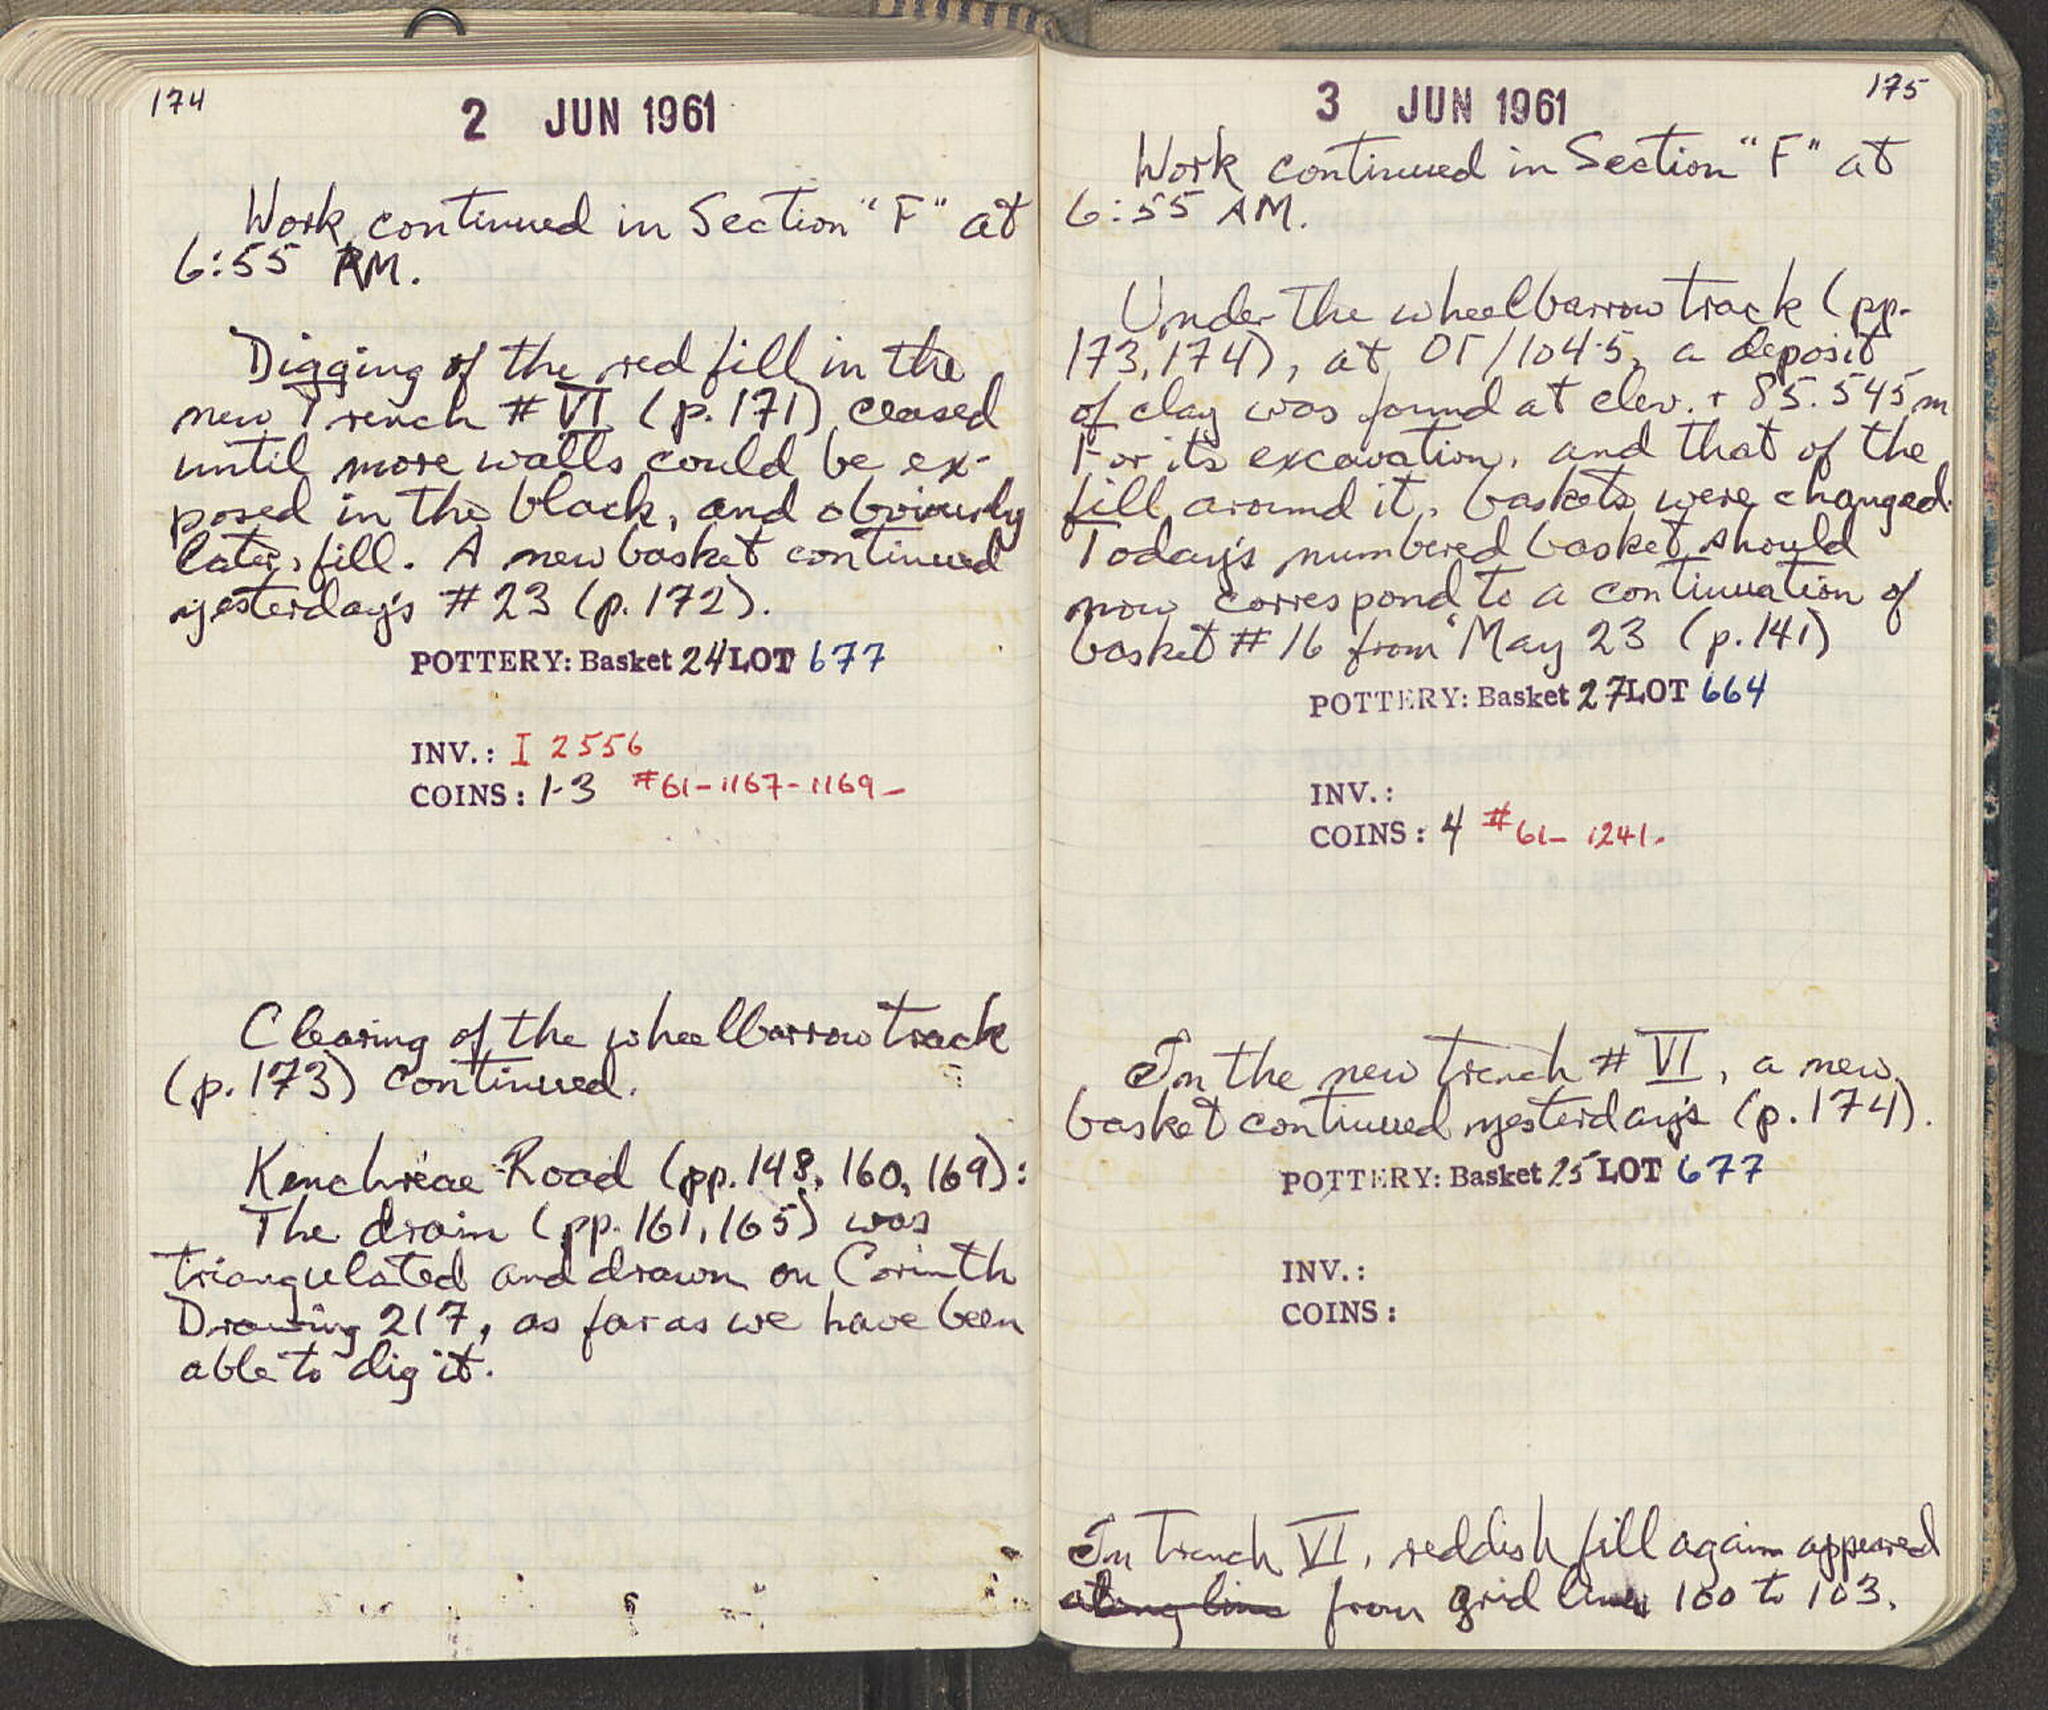 174
2 JUN 1961
Work continued in Section "F" at
6:55 AM.
Digging of the red fill in the
new Trench # VI (p. 171) ceased
until more walls could be ex-
posed in the black, and obviously
later, fill. A new basket continued
yesterday's # 23 (p. 172).
POTTERY: Basket 24 LOT 677
INV.: I 2556
COINS: 1-3 #61-1167-1169-
Clearing of the wheelbarrow track
(p. 173) continued.
Kenchreae Road (pp. 148, 160, 169):
The drain (pp. 161, 165) was
triangulated and drawn on Corinth
Drawing 217, as far as we have been
able to dig it.
175
3 JUN 1961
Work continued in Section "F" at
6:55 AM.
Under the wheelbarrow track (pp.
173, 174), at /104.5, a deposit
of clay was found at elev. + 85.545 m
For its excavation, and that of the
fill around it, baskets were changed.
Today's numbered basket should
now correspond to a continuation of
basket # 16 from May 23 (p. 141)
POTTERY: Basket 27 LOT 664
INV.:
COINS: 4 #61-1241.
In the new trench # VI, a new
basket continued yesterday's (p. 174).
POTTERY: Basket 25 LOT 677
INV.:
COINS:
In Trench VI, reddish fill again appeared
along line from grid lines 100 to 103.